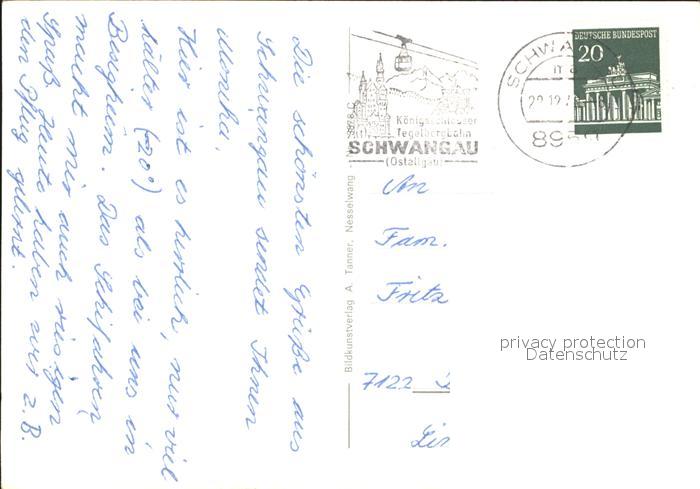 Die schönsten Grüße aus
Schwangau sendet Ihnen
Monika.
Hier ist es herrlich, nur viel
kälter (-20°) als bei uns in
Bergheim. Das Schifahren
macht mir auch riesigen
Spaß. Heute haben wir z.B.
den Pflug gelernt.
Bildkunstverlag A. Tanner, Nesselwang
Königsschlösser
Tegelbergbahn
SCHWANGAU
(Ostallgäu)
SCHWA
DEUTSCHE BUNDESPOST
20
An
Fam.
Fritz
7122
privacy protection
Datenschutz